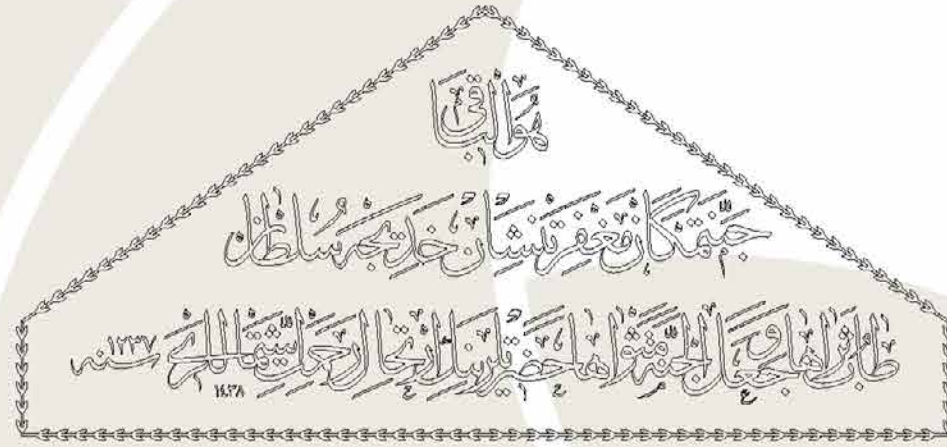 هُوَ الْبَاقِي
جنتمكان مغفرتنشان خديجه سلطان
طاب ثراها وجعل الجنة مثواها حضرتلرينك ارتحال رحمت اشتماللرى سنه ١٢٣٧
١٤٣٨